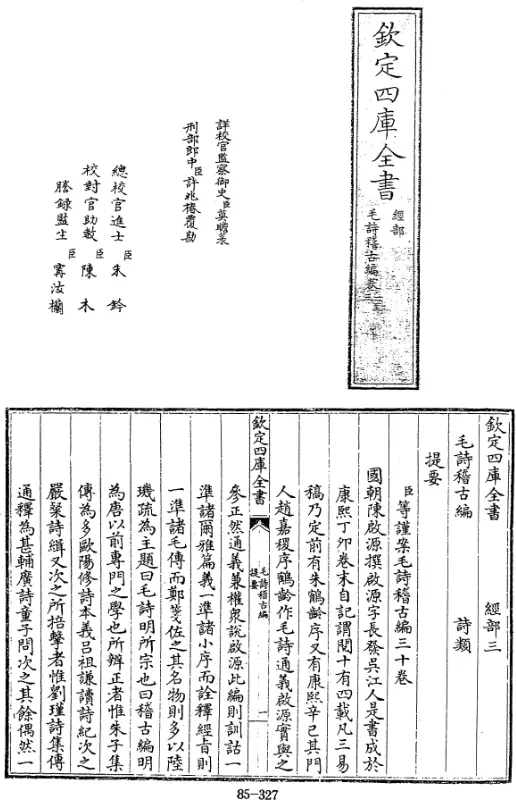 欽定四庫全書
經部
毛詩稽古編卷
詳校官監察御史臣莫瞻菉
刑部郎中臣許兆椿覆勘
總校官進士臣朱鈐
校對官助教臣陳木
謄錄監生臣竇汝
欽定四庫全書 經部三
毛詩稽古編 詩類
提要
臣等謹案毛詩稽古編三十卷
國朝陳啟源撰啟源字長發吳江人是書成於
康熙丁卯卷末自記謂閱十有四載凡三易
稿乃定前有朱鶴齡序又有康熙辛巳其門
人趙嘉稷序鶴齡作毛詩通義啟源實與之
欽定四庫全書
毛詩稽古編
提要
一
參正然通義兼權衆說啟源此編則訓詁一
準諸爾雅篇義一準諸小序而詮釋經旨則
一準諸毛傳而鄭箋佐之其名物則多以陸
璣疏為主題曰毛詩明所宗也曰稽古編明
為唐以前專門之學也所辨正者惟朱子集
傳為多歐陽修詩本義呂祖謙讀詩紀次之
嚴粲詩緝又次之所掊擊者惟劉瑾詩集傳
通釋為甚輔廣詩童子問次之其餘偶然一
85-327